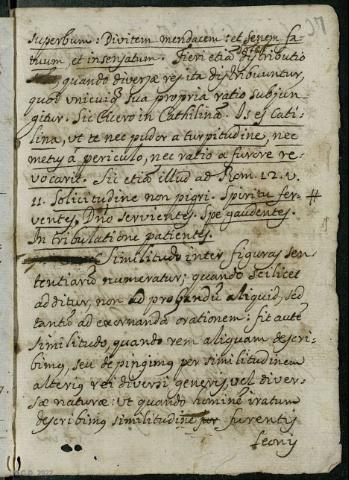 107
superbum: Divitem mendacem: et senem fa-
tuum, et insensatum. Fieri etiā potest distributio
quando diversæ res ita distribuuntur,
quod unicuiq̃ sua propria ratio subjun-
gitur. Sic Cicero in Cathilinā. Is es Cati-
lina, ut te nec pudor a turpitudine, nec
metus a periculo, nec ratio a furore re-
vocavit. Sic etiā illud ad Rom. 12. v.
11. Solicitudine non pigri. Spiritu fer-
ventes. Dño servientes. Spe gaudentes.
In tribulatione patientes.
Similitudo inter figuras sen-
tentiarū numeratur, quando scilicet
additur, non ad probandū aliquid, sed
tantū ad exornanda orationem: fit autē
similitudo, quando rem aliquam descri-
bimꝰ, seu depingimꝰ per similitudinem
alterius rei diversi generis, vel diver-
sæ naturæ: ut quando hominē iratum
describimꝰ similitudine furentis
Leonis